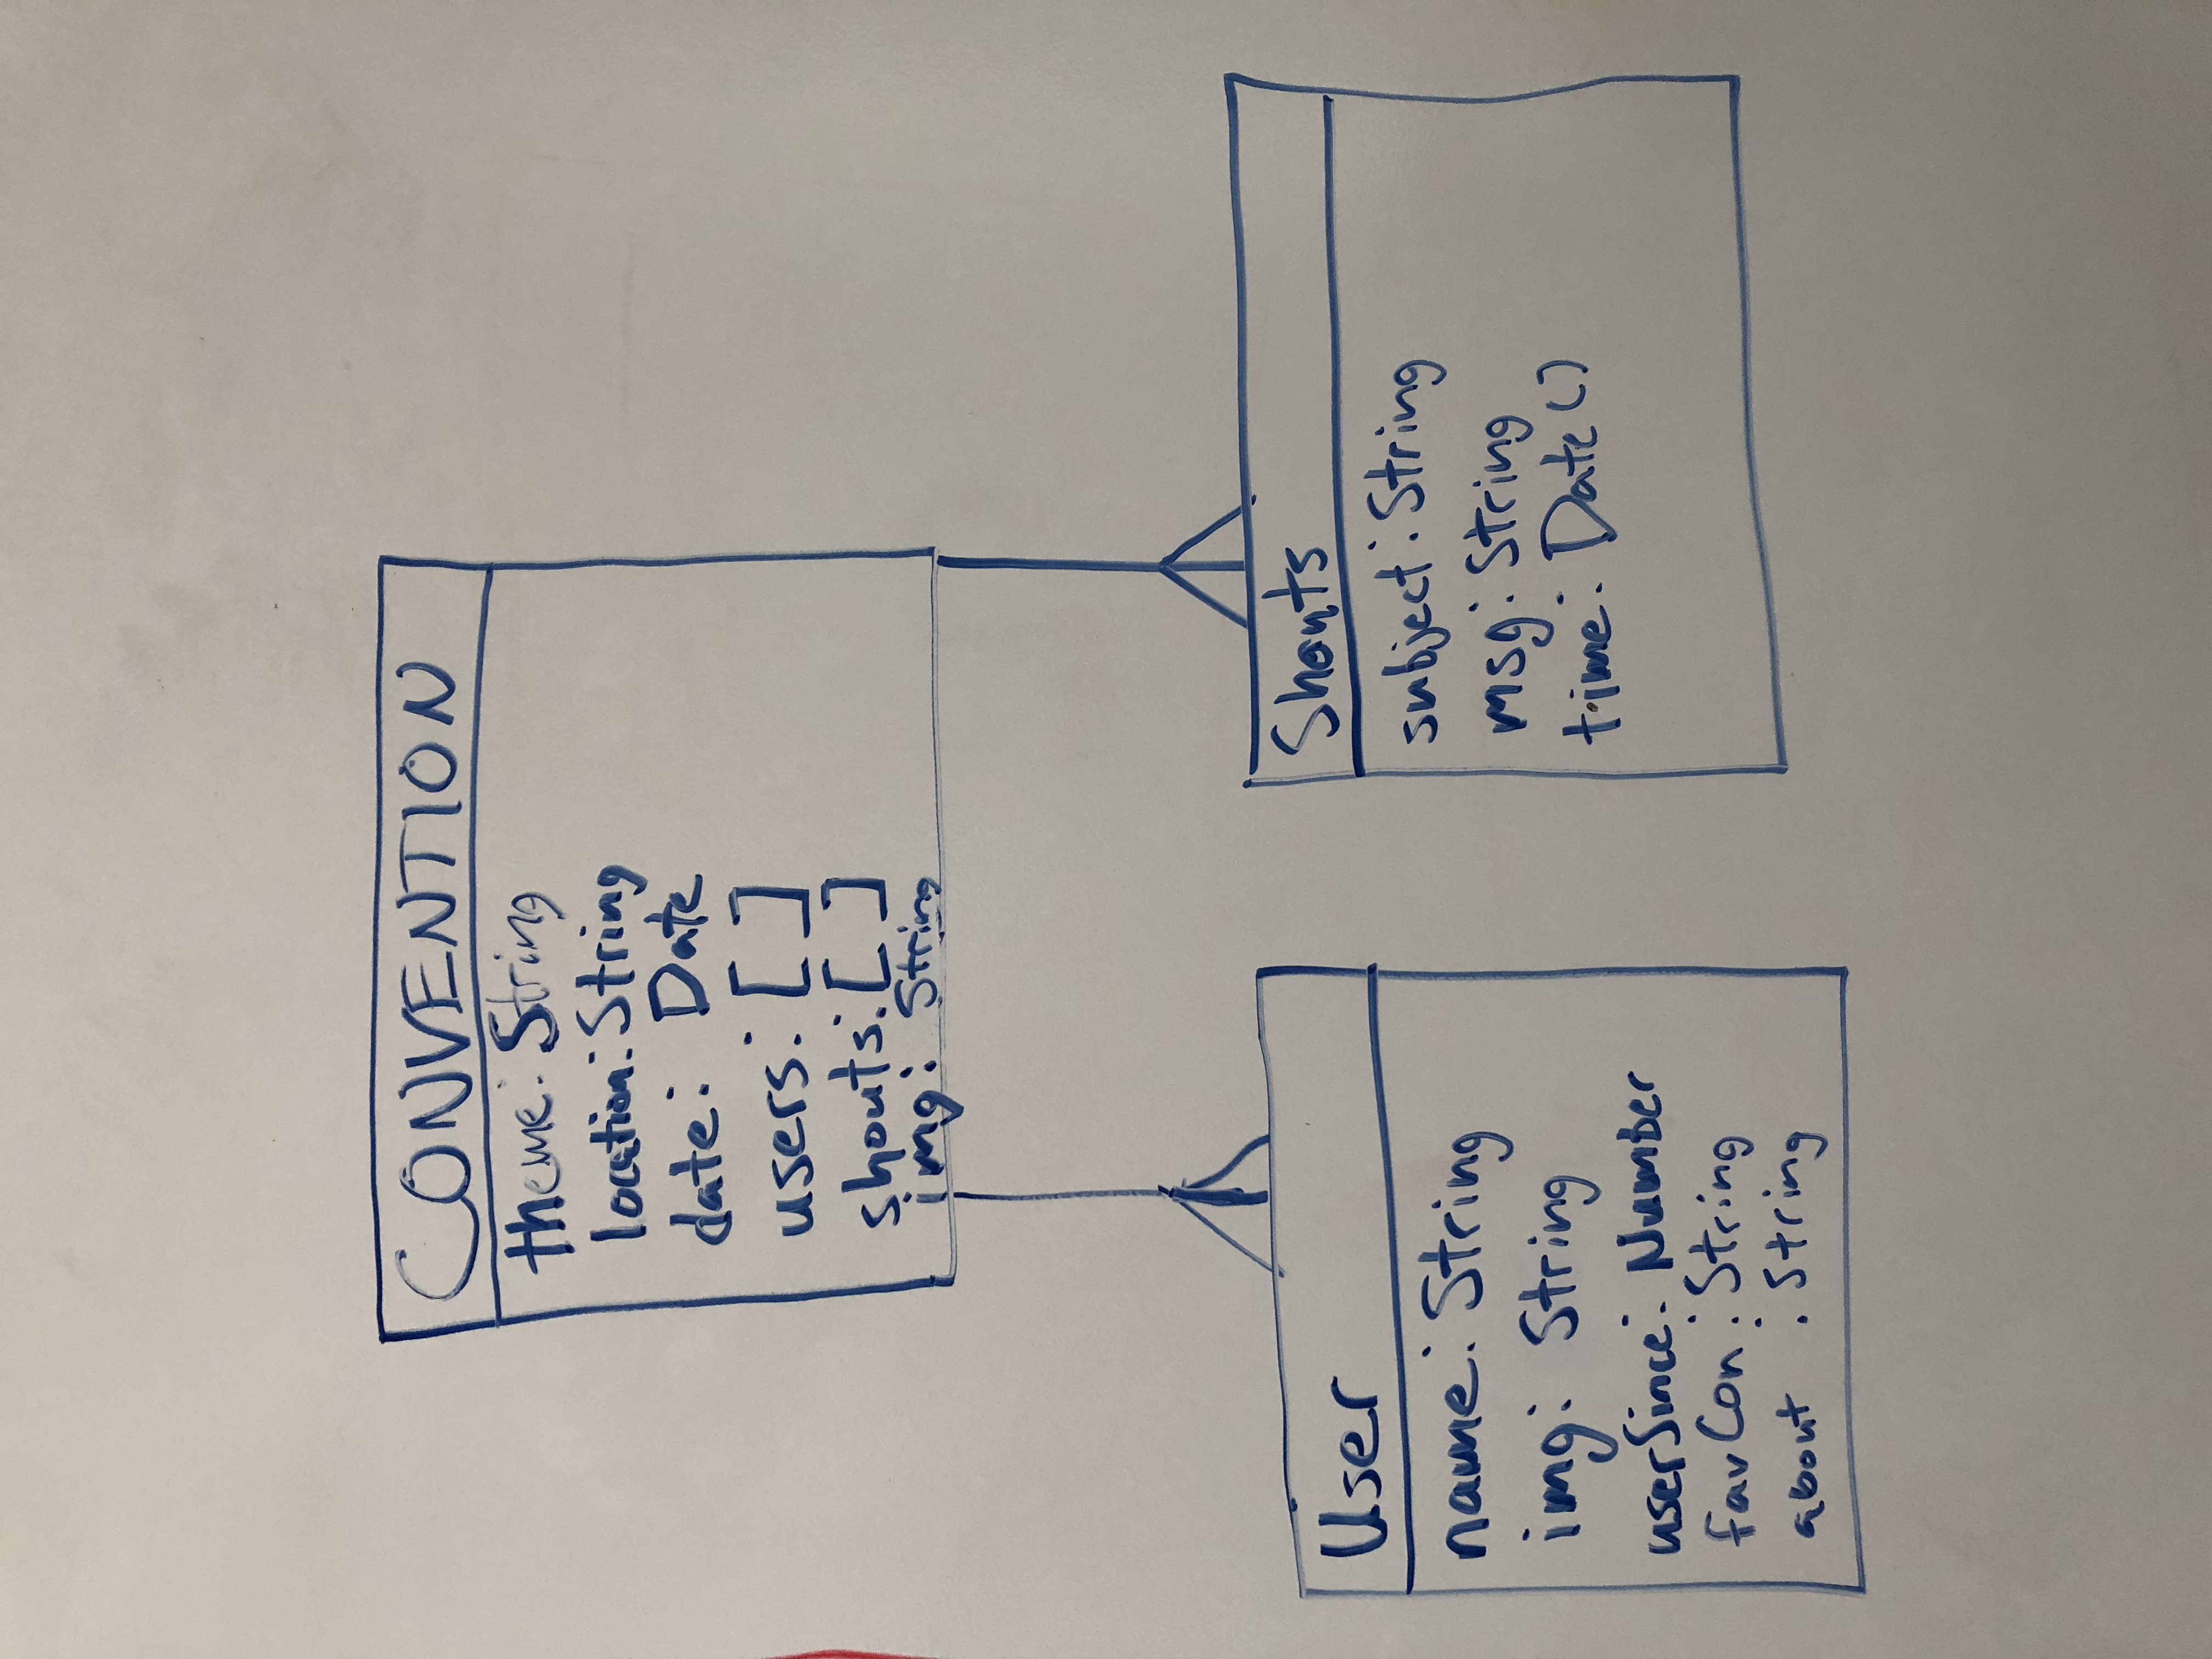 CONVENTION
theme: String
location: String
date: Date
users: [ ]
shouts: [ ]
img: String
User
name: String
img: String
userSince: Number
favCon: String
about : String
Shouts
subject: String
msg: String
time: Date()